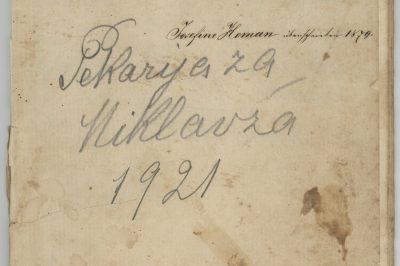 Josefine Homan 1879.
Pekarija za
Miklavža
1921